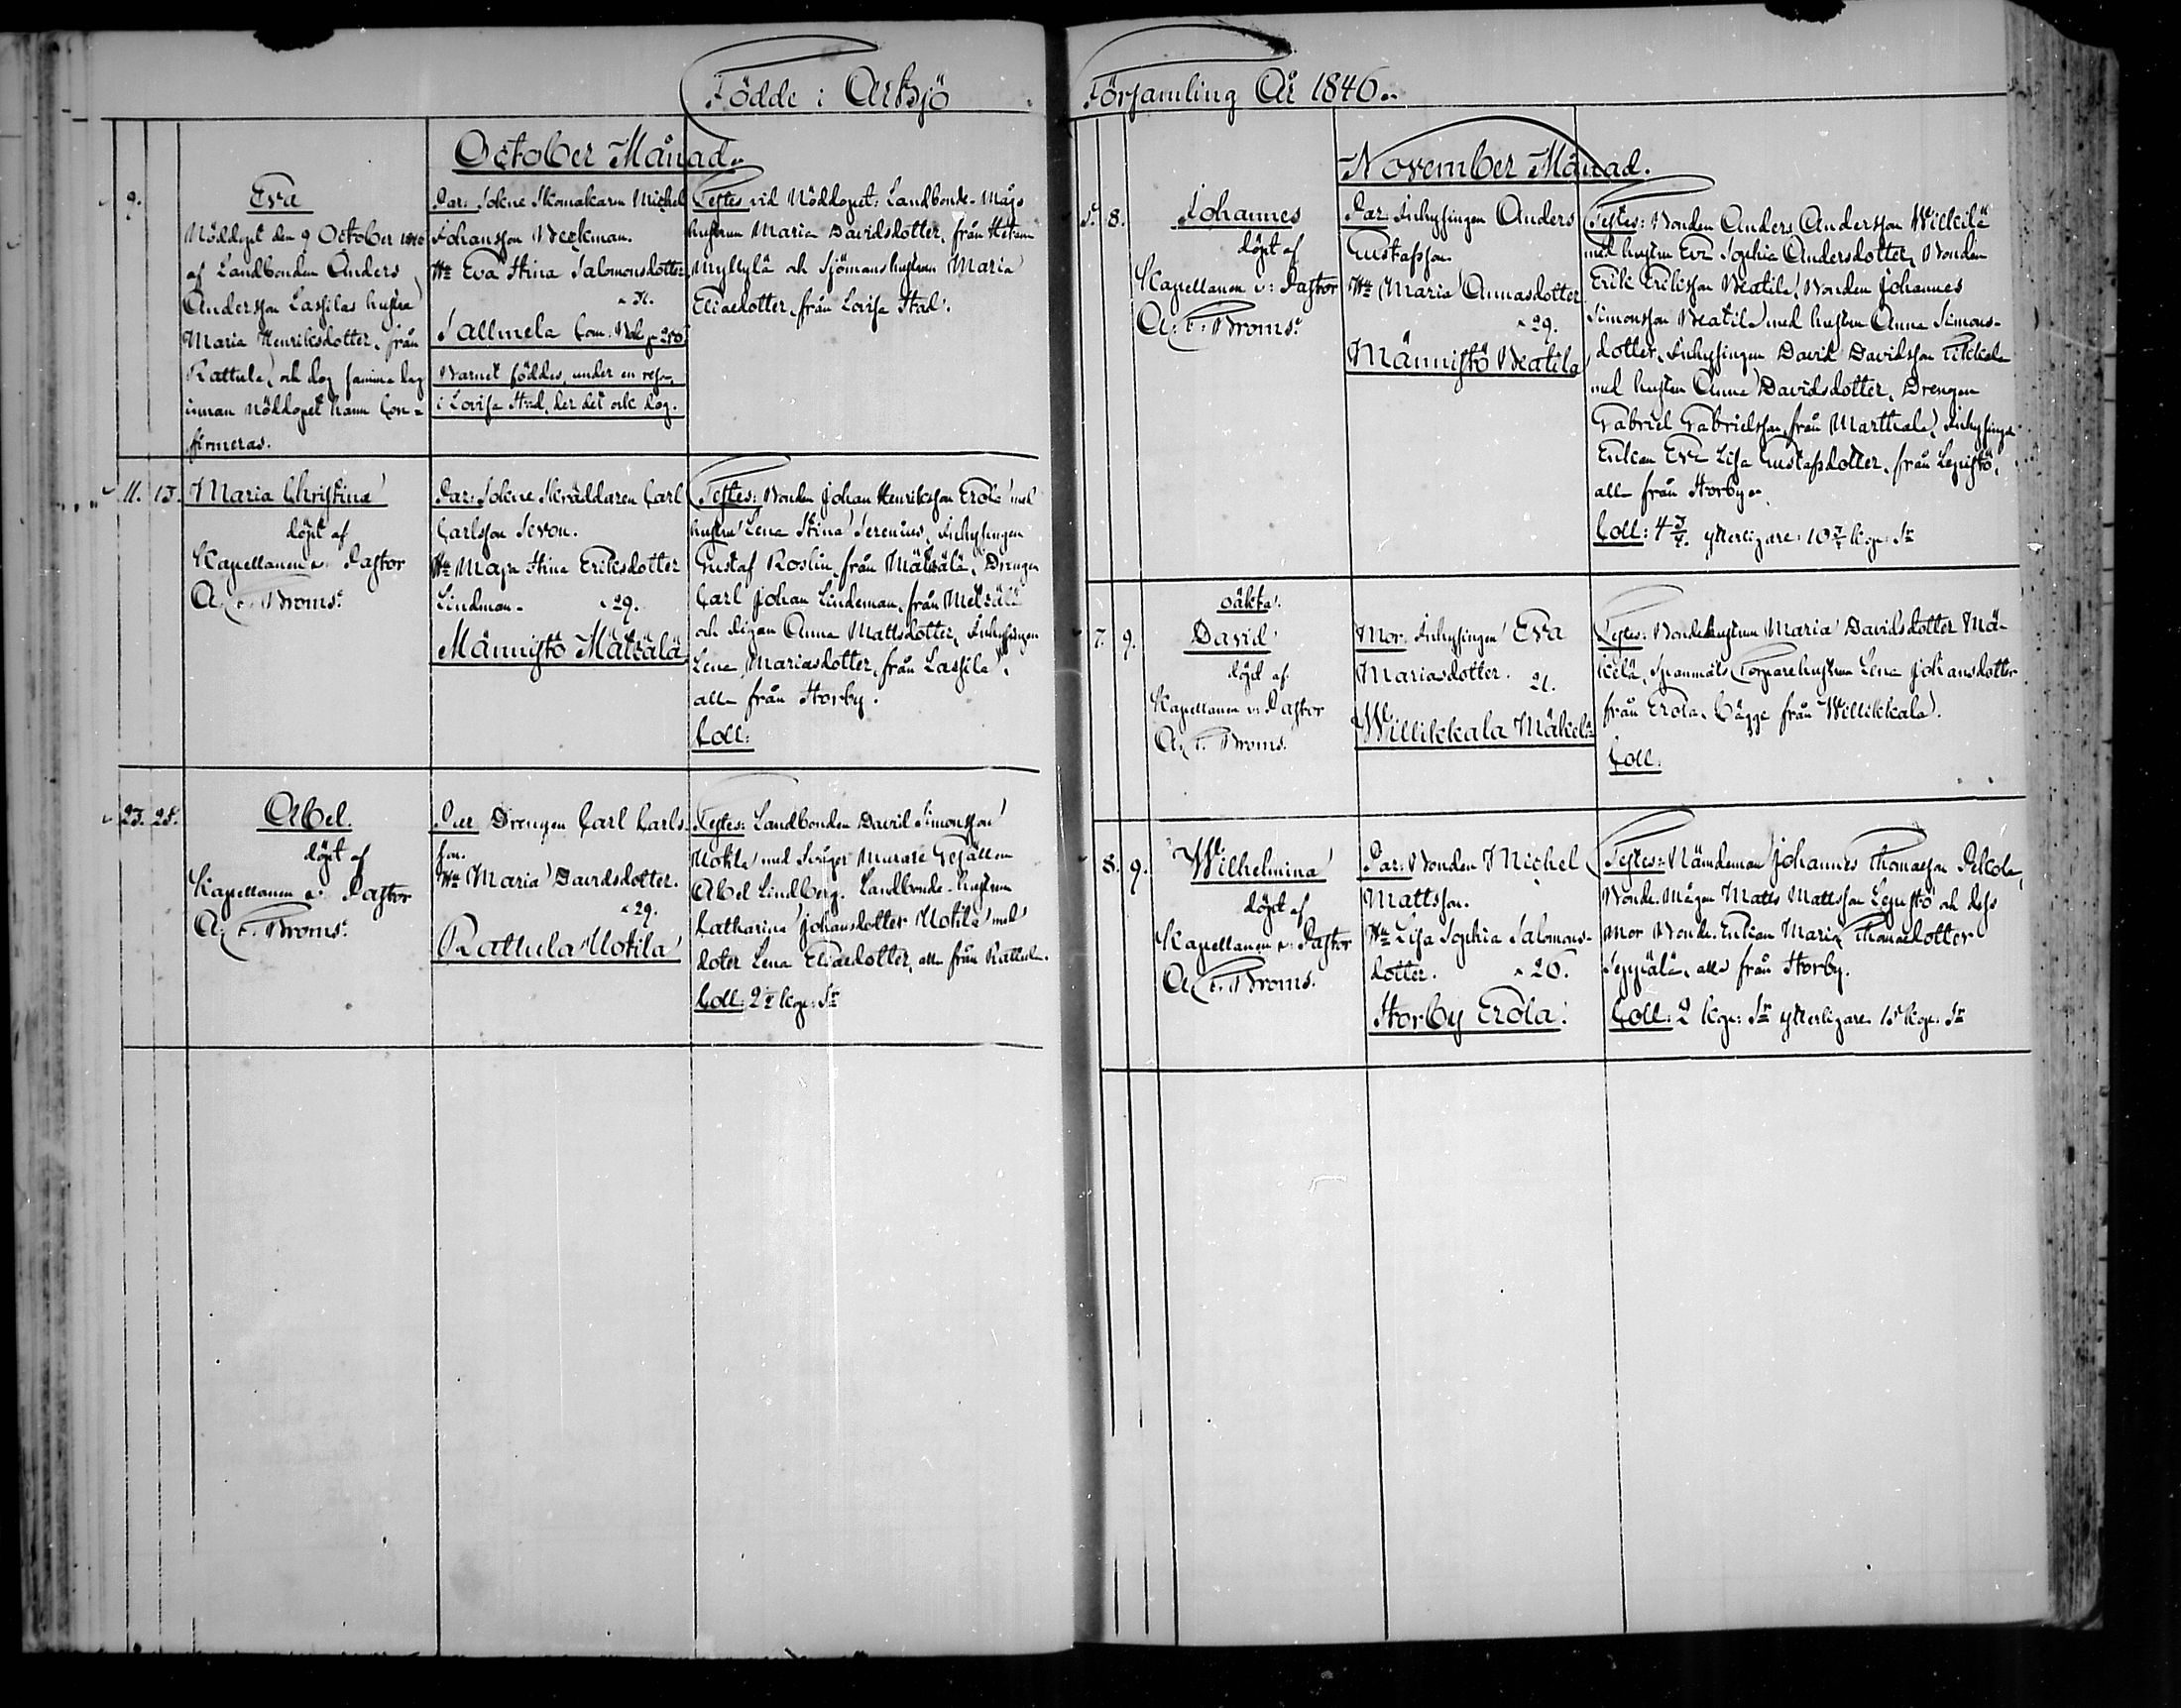 Födde i Artsjö
October Månad.
9.
Eva
Nöddöpt den 9 October 1846
af Landbonden Anders
Andersson Lassilas hustru
Maria Henriksdotter, från
Rattula, och dog samma dag
innan nöddopet hann Con-
firmeras.
Par: Sokne Skomakaren Michel
Johansson Beckman.
Hu Eva Stina Salomonsdotter
Sallmela Com. Bok p. 250
Barnet föddes, under en resa,
i Lovisa Stad, der det ock dog.
Testes vid Nöddopet: Landbonde-Mågs
hustrun Maria Davidsdotter, från
Myllylä och Sjömanshustrun Maria
Eliaedotter, från Lovisa Stad.
11. 13.
Maria Christina
döpt af
Kapellanen v: Pastor
A. F. Broms.
Par: Sokne Skräddaren Carl
Carlsson Sevon.
Hu Maja Stina Eriksdotter
Lindman. 29.
Männistö Mätzälä
Testes: Bonden Johan Henriksson Erola med
hustru Lena Stina Serenius, Inhysingen
Gustaf Roslin, från Mätzälä, Drengen
Carl Johan Lindeman, från Metzälä
och Pigan Anna Mattsdotter, Inhysingen
Lena Mariasdotter, från Lassila,
alla från Storby.
Coll:
23. 25.
Abel.
döpt af
Kapellanen v: Pastor
A. F. Broms.
Par: Drengen Carl Carls-
son.
Hu Maria Davidsdotter.
29.
Rattula Uotila
Testes: Landbonden David Simonsson
Uotila med Svåger Murare Gesällen
Abel Lindberg. Landbonde-hustrun
Catharina Johansdotter Uotila med
doter Lena Eliaedotter, alla från Rattula.
Coll: 2 kop: Sr
Församling År 1846.
November Månad.
5. 8.
Johannes
döpt af
Kapellanen v: Pastor
A. F. Broms.
Par: Inhysingen Anders
Gustafsson.
Hu Maria Annasdotter
29.
Männistö Beatila
Testes: Bonden Anders Andersson Wilkilä
med hustru Eva Sophia Andersdotter, Bonden
Erik Eriksson Beatila, Bonden Johannes
Simonsson Beatila med hustru Anna Simons-
dotter, Inhysingen David Davidsson Pikkala
med hustru Anna Davidsdotter, Drengen
Gabriel Gabrielsson, från Marttala, Inhysinge
Enkan Eva Lisa Gustafsdotter, från Lepistö,
alla från Storby.
Coll: 4 3/7. ytterligare 10 3/7 kop: Sr
7. 9.
oäkta
David
döpt af
Kapellanen v: Pastor
A. F. Broms.
Mor. Inhysingen Eva
Mariasdotter. 21.
Willikkala Mäkelä
Testes: Bondehustrun Maria Davidsdotter Mä-
kelä, Torparehustrun Lena Johansdotter
från Erola, bägge från Willikkala.
Coll.
8. 9.
Wilhelmina
döpt af
Kapellanen v: Pastor
A. F. Broms.
Par: Bonden Michel
Mattsson.
Hu Lisa Sophia Salomons-
dotter. 26.
Storby Erola.
Testes: Nämdeman Johannes Thomasson Pekola,
Bonde-Mågen Matts Mattsson Lepistö och dess
mor Bonde-Enkan Maria Thomasdotter
Seppälä, alla från Storby.
Coll: 2 kop: Sr ytterligare 15 kop. Sr